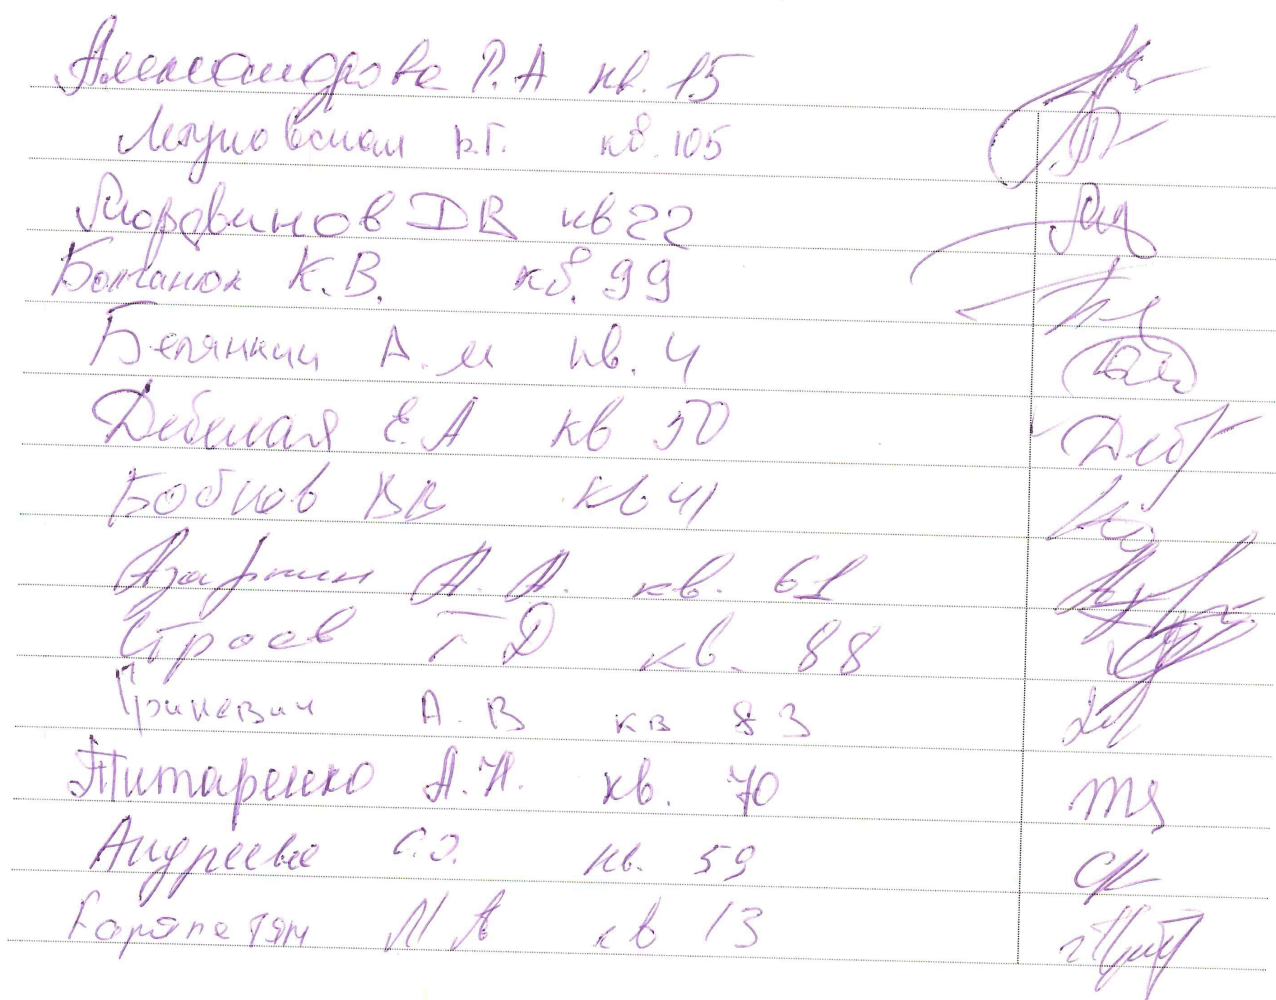 Александрова Р.А кв. 15
В.Г. кв. 105
Мордвинов Д В кв 22
Болганюк К.В. кв. 99
Белянкин А.М кв. 4
Дебелая Е.А кв 50
Бобков В В кв 41
Азаркин А.А. кв. 61
Строев Г Д кв. 88
Гриневич А.В кв 83
Титаренко А.Н. кв. 70
Андреева С.О. кв. 59
Карапетян М А кв 13